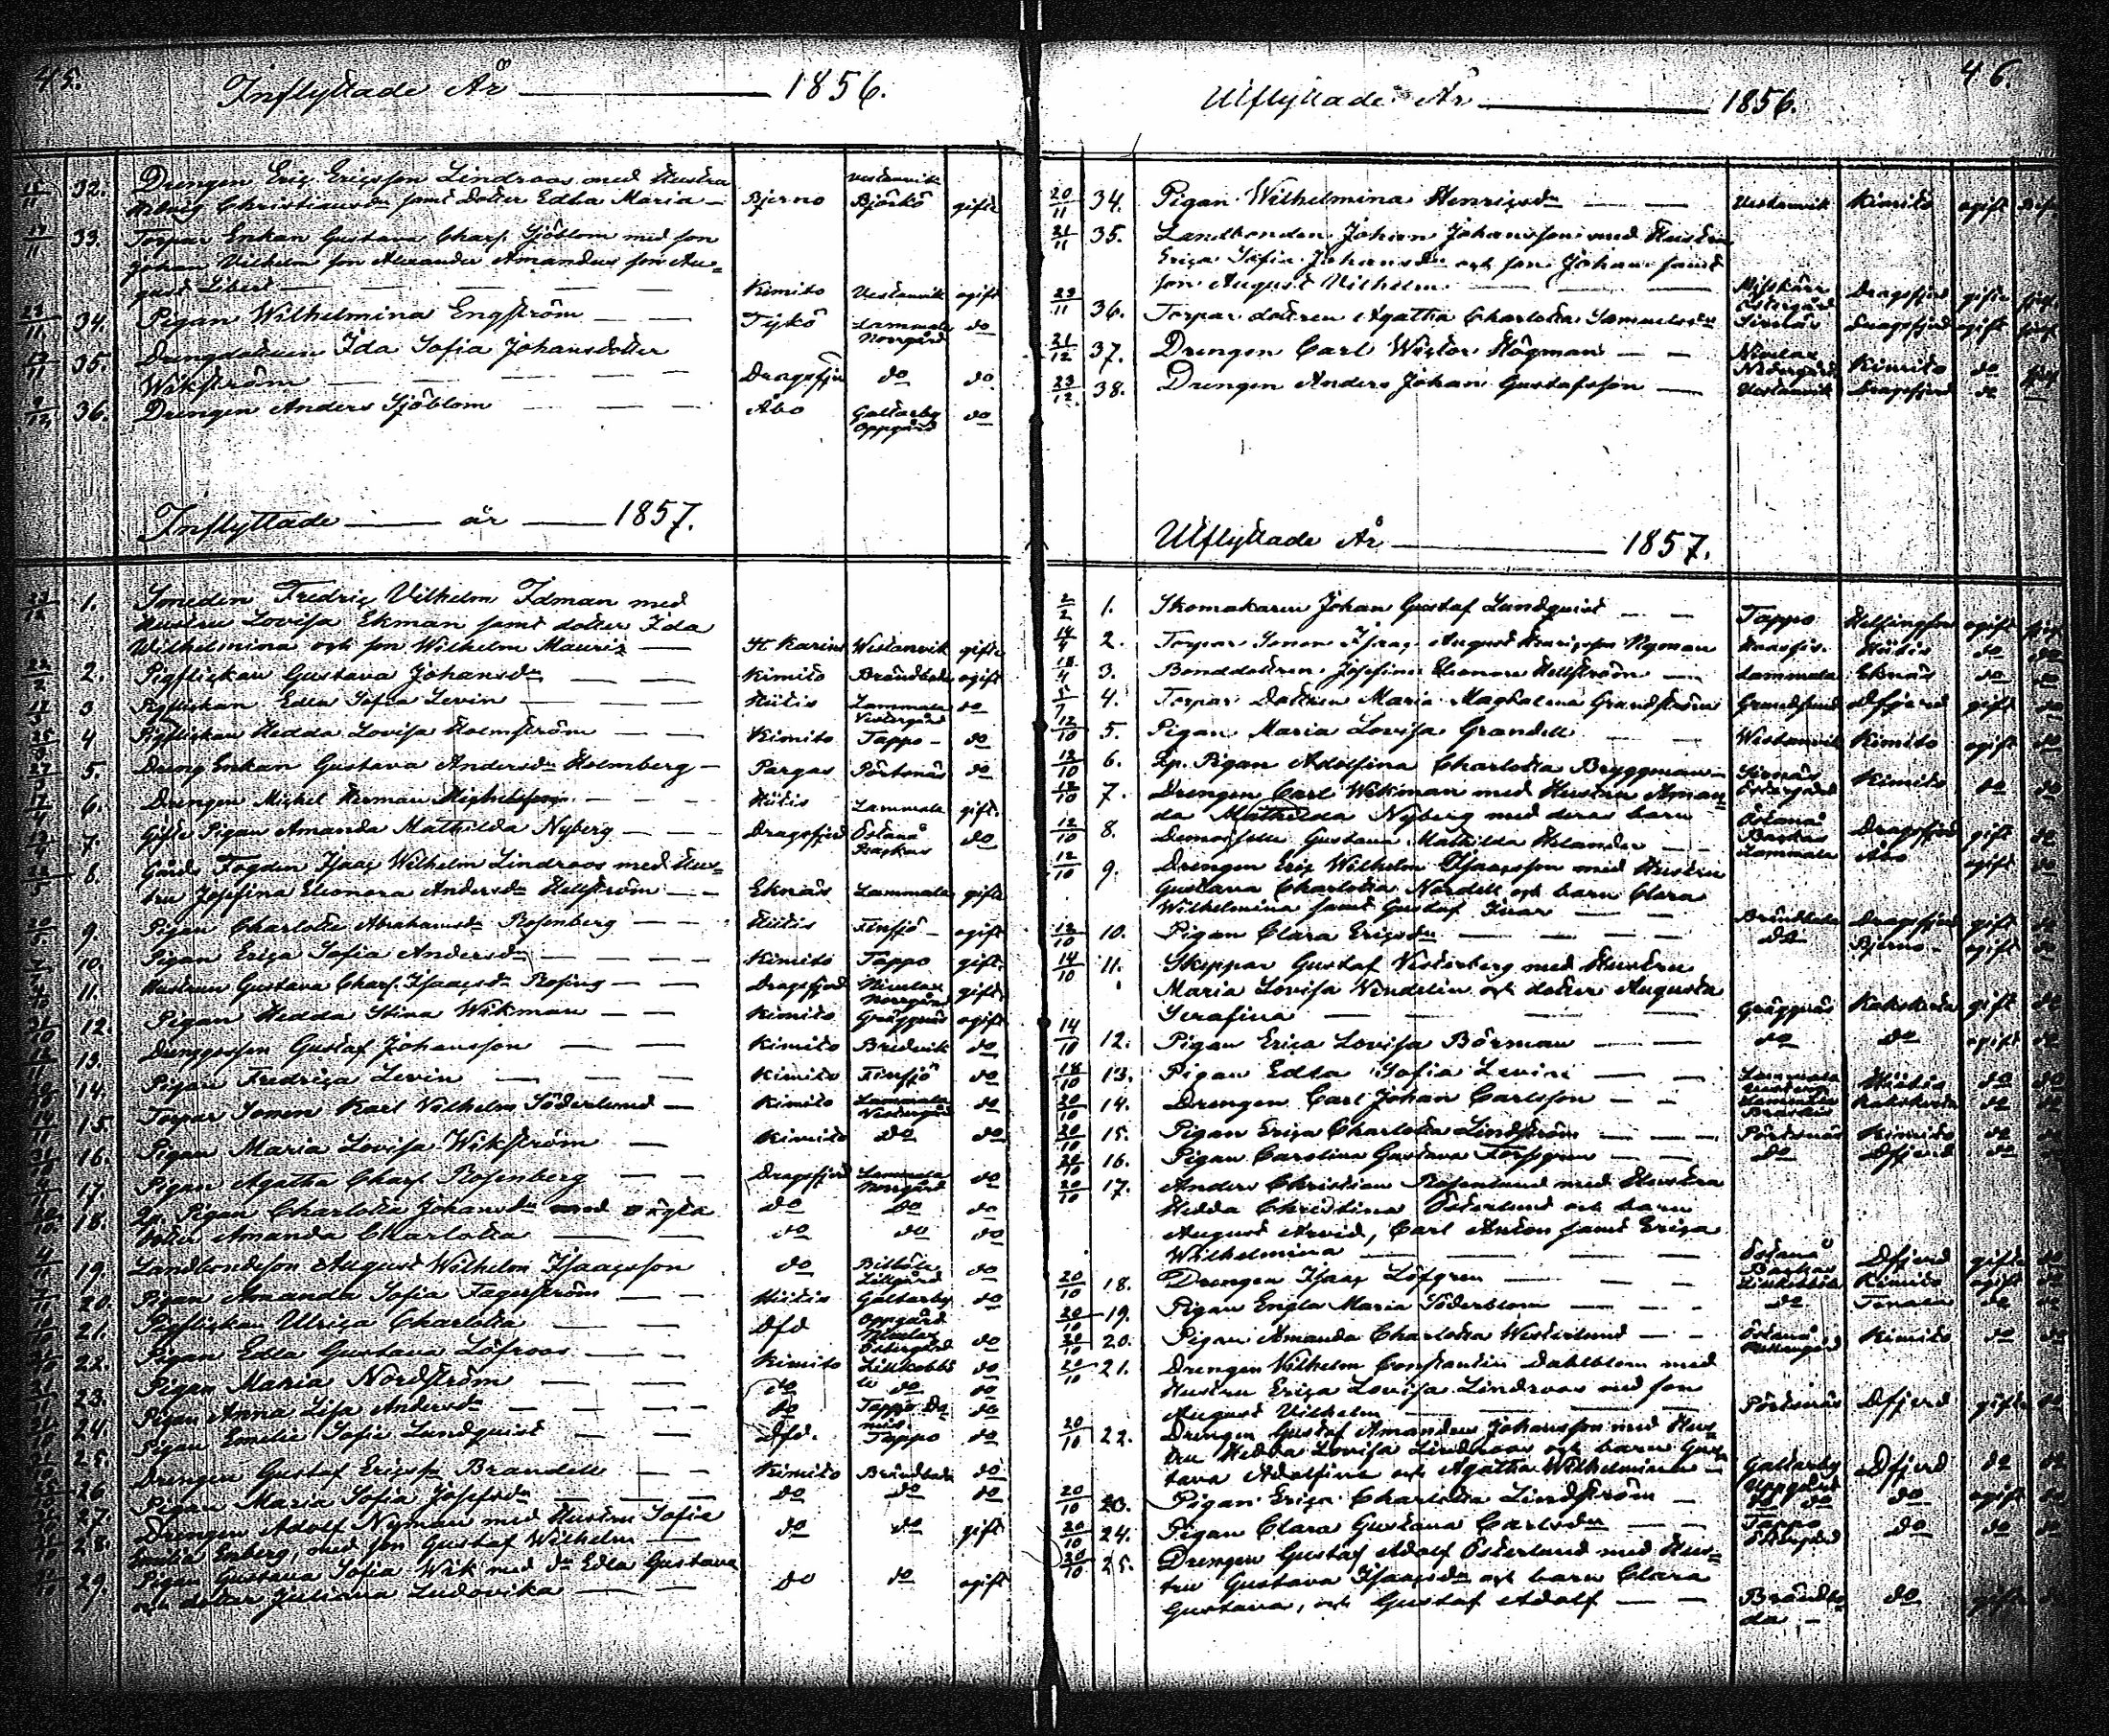 45.
Inflyttade År 1856.
32. Drengen Eric Ericsson Lindroos med Hustru
Christiansdr samt dotter Edla Maria Bjerno Vestanvik Björkö gifte
33. Torpar Enkan Gustava Charl. Sjöblom med son
Johan Vilhelm son Alexander Amandus son Au-
gust Libert Kimito Vestanvik ogift
34. Pigan Wilhelmina Engström Tykö Lammala Norrgård do
35. Drengdottren Ida Sofia Johansdotter
Wikström Dragsfjerd do do
36. Drengen Anders Sjöblom Åbo Galtarby Oppgård do
Inflyttade år 1857.
1. Smeden Fredric Vilhelm Idman med
Hustru Lovisa Ekman samt dotter Ida
Wilhelmina och son Wilhelm Mauriz St Karins Westanvik gifte
2. Pigflickan Gustava Johansdr Kimito Brändboda ogift
3 Pigflickan Edla Sofia Levin Hitis Lammala Vestergård do
4 Pigflickan Hedda Lovisa Holmström Kimito Tappo do
5. Dreng Enkan Gustava Andersdr Holmberg Pargas Pörtsnäs do
6. Drengen Mickel Herman Hitis Lammala gift.
7. Gifte Pigan Amanda Mathilda Nyberg Dragsfjerd Östanå Backas do
8. Gårds Fogden Isaac Wilhelm Lindroos med Hus-
tru Josefina Eleonora Andersdr Hellström Eknäs Lammala gifte
9. Pigan Charlotta Abrahamsdr Rosenberg Hitis Finsjö ogift
10. Pigan Erica Sofia Andersdr Kimito Tappo gift.
11. Hustrun Gustava Charl. Isaacsdr Rosing Dragsfjerd Nivelax Norrgård gift
12. Pigan Hedda Stina Wikman Kimito Gräggnäs ogift
13. Drengessen Gustaf Johansson Kimito Bredvik do
14. Pigan Fredrica Levin Kimito Finsjö do
15. Torpar Sonen Karl Vilhelm Söderlund Kimito Lammala Vestergård do
16. Pigan Maria Lovisa Wikström Kimito do do
17. Pigan Agatha Charl. Rosenberg Dragsfjerd Lammala Norrgård do
18. Qp. Pigan Charlotta Johansdr med oägta do do do
dotter Amanda Charlotta do do do
19. Landbondeson August Wilhelm Isaacsson do Billböle Lillgård do
20. Pigan Amanda Sofia Fagerström Hitis Galtarby Oppgård do
21. Pigflickan Ulrica Charlotta Dfd Nivelax Östergård do
22. Pigan Edla Gustava Löfroos Kimito do
23. Pigan Maria Nordström do do do
24. Pigan Anna Lisa Andersdr do Tappo do
25. Pigan Emelie Sofia Lundquist Dfd. Tappo do
26 Drengen Gustaf Ericss. Brandell Kimito Brändboda do
27. Pigan Maria Sofia Josefsdr do do do
28. Drengen Adolf Nyman med Hustru Sofia
Emelia Enberg, med son Gustaf Wilhelm do do gift
29. Pigan Gustava Sofia Wik med dr Edla Gustava
och dotter Juliana Ludovika do do ogift
46.
Utflyttade År 1856.
20/11 34. Pigan Wilhelmina Henricsdr Vestanvik Kimito ogift
21/11 35. Landbonden Johan Johansson med Hustru
Erica Sofia Johansdr och son Johan samt
son August Vilhelm Dragsfjerd gifte
23/11 36. Torpar dottren Agatha Charlotta Samuelsdr Östergård Dragsfjerd ogift
21/12 37. Drengen Carl Wictor Högman Nivelax Nedergård Kimito do
23/12 38. Drengen Anders Johan Gustafsson Vestanvik Dragsfjerd do
Utflyttade År 1857.
2/2 1. Skomakaren Johan Gustaf Lundquist Tappo Helsingfors ogift
14/4 2. Torpar Sonen Isaac August Nyman Hitis do do
18/4 3. Bonddottren Josefina Eleonora Hellström Lammala Eknäs do do
5/7 4. Torpar Dottren Maria Magdalena Grandström Dfjerd gift do
12/10 5. Pigan Maria Lovisa Grandell Westanvik Kimito ogift do
12/10 6. Qp. Pigan Adolfina Charlotta Bryggman Östergård Kimito do do
12/10 7. Drengen Carl Wikman med Hustru Aman-
da Mathilda Nyberg med deras barn Östanå Backas Dragsfjerd gift do
12/10 8. Demoiselle Gustava Mathilda Helander Lammala Åbo ogift do
12/10 9. Drengen Eric Wilhelm Isaacsson med Hustru
Gustava Charlotta Nordell och barn Clara
Wilhelmina samt Gustaf Ivar Brändboda Dragsfjerd gift do
12/10 10. Pigan Clara Ericsdr do Bjerno ogift do
14/10 11. Skeppar Gustaf Vesterberg med Hustru
Maria Lovisa Wendelin och dotter Augusta
Serafina Gräggnäs Kakskerta gift do
14/10 12. Pigan Erica Lovisa Börman do do ogift do
18/10 13. Pigan Edla Sofia Levin Lammala Hitis do do
20/10 14. Drengen Carl Johan Carlsson Kakskerta do do
20/10 15. Pigan Erica Charlotta Lindström Pörtsnäs Kimito do do
20/10 16. Pigan Carolina Gustava Forsgren do Dfjerd do do
20/10 17. Anders Christian Rosenlund med Hustru
Hedda Christina Österlund och barn
August Arvid, Carl Anton samt Erica
Wilhelmina Östanå Backas Dfjerd gifte do
20/10 18. Drengen Isaac Löfgren Kimito ogift do
20/10 19. Pigan Engla Maria Söderblom do Tenala do do
20/10 20. Pigan Amanda Charlotta Westerlund Östanå Kimito do do
20/10 21. Drengen Vilhelm Constantin Dahlblom med
Hustru Erica Lovisa Lindroos med son
August Vilhelm Pörtsnäs Dfjerd gifte do
20/10 22. Drengen Gustaf Amandus Johansson med Hus-
tru Hedda Lovisa Lindroos och barn Gus-
tava Adolfina och Agatha Wilhelmina Galtarby Uppgård Dfjerd do do
20/10 23. Pigan Erica Charlotta Lindström do do do ogift do
20/10 24. Pigan Clara Gustava Carlsdr Tappo Östergård do do do
20/10 25. Drengen Gustaf Adolf Österlund med Hus-
tru Gustava Isaacsdr och barn Clara
Gustava, och Gustaf Adolf Brändbo-
da do gifte do